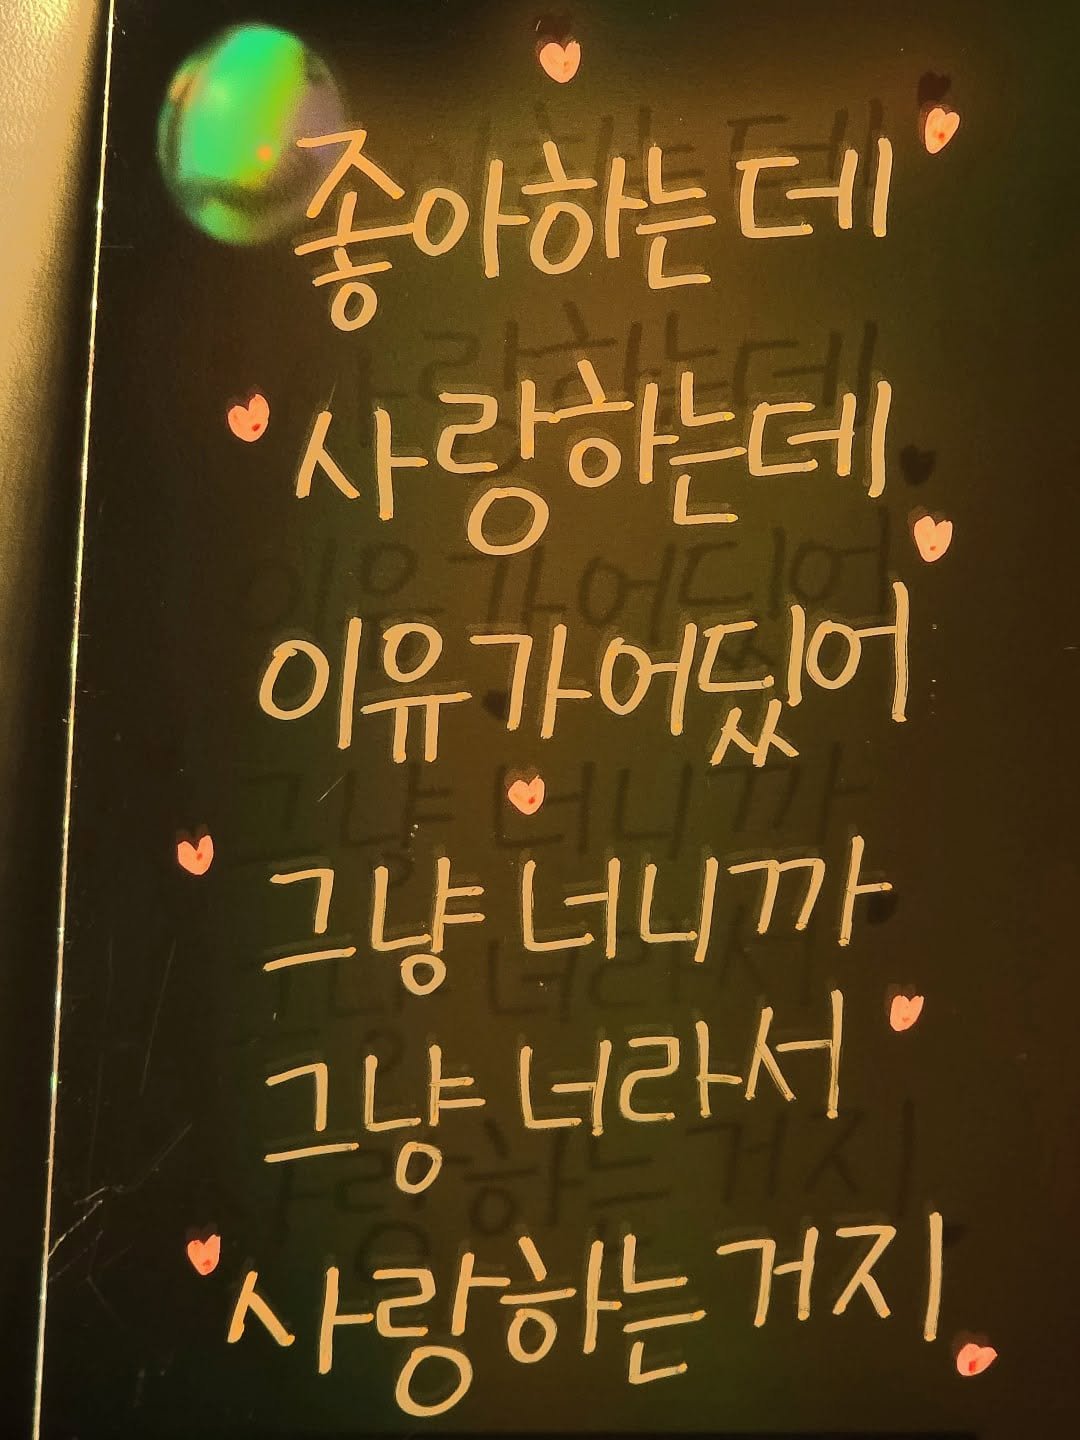 좋아하는데
사랑하는데
이유가어딨어
그냥 너니까
그냥 너라서
사랑하는 거지